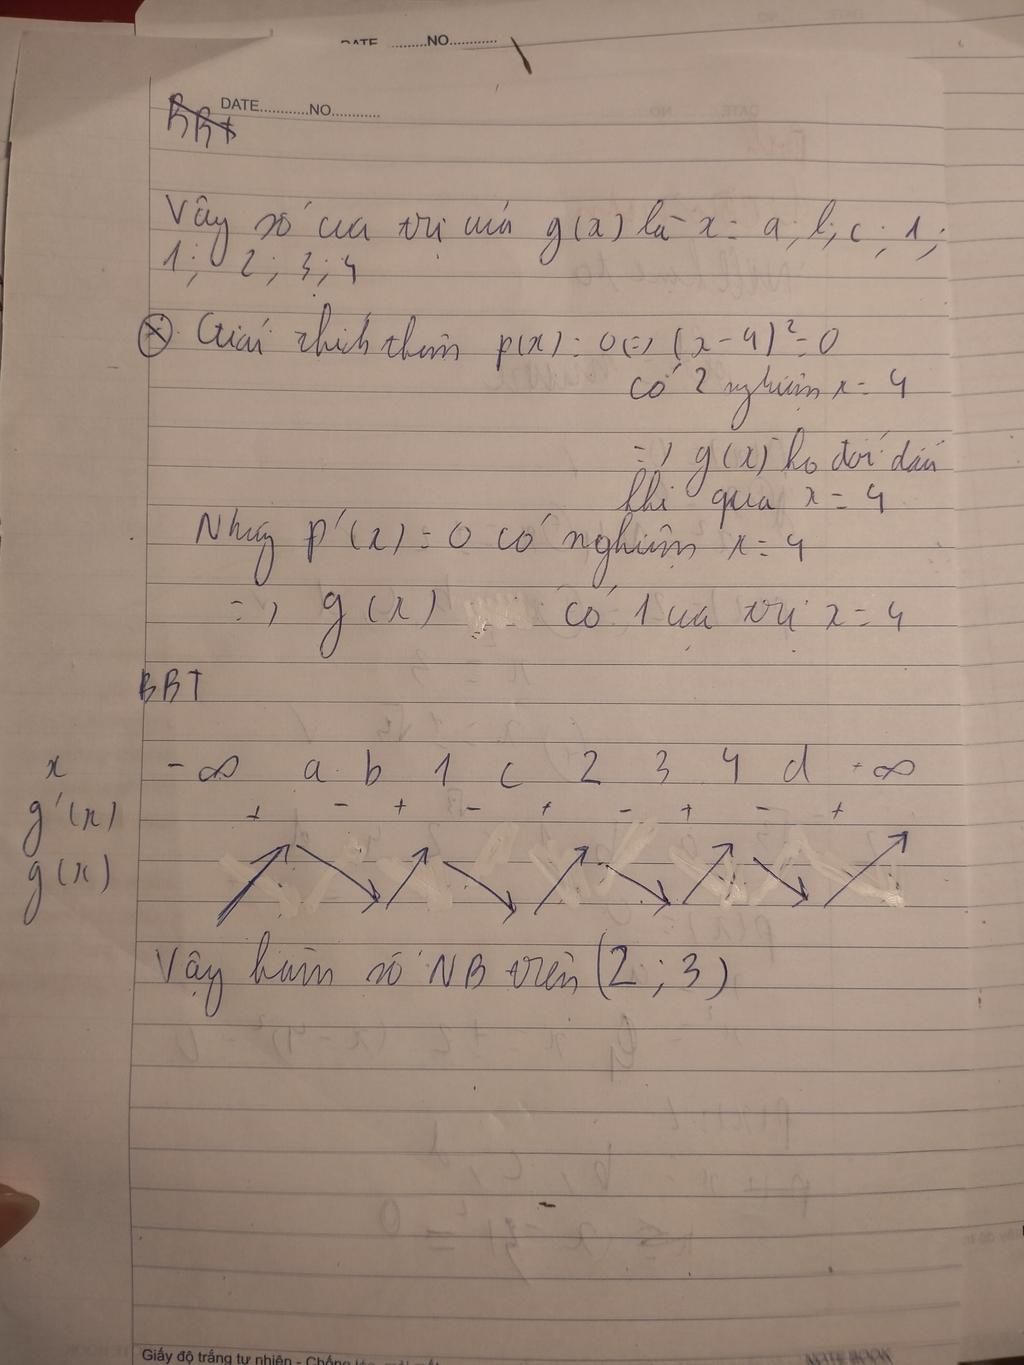 DATE..........NO............
DATE...........NO............
BBT
Vậy số cực trị của g(x) là x = a; b; c; 1;
1; 2; 3; 4
Giải thích thêm p(x) = 0 <=> (x-4)² = 0
có 2 nghiệm x = 4
=> g(x) ko đổi dấu
khi qua x = 4
Nhưg p'(x) = 0 có nghiệm x = 4
=> g(x) có 1 cực trị x = 4
BBT
x -∞ a b 1 c 2 3 4 d +∞
g'(x) + - + - + - + - +
g(x)
Vậy hàm số NB trên (2; 3)
Giấy độ trắng tự nhiên - Chống
NOTE BOOK